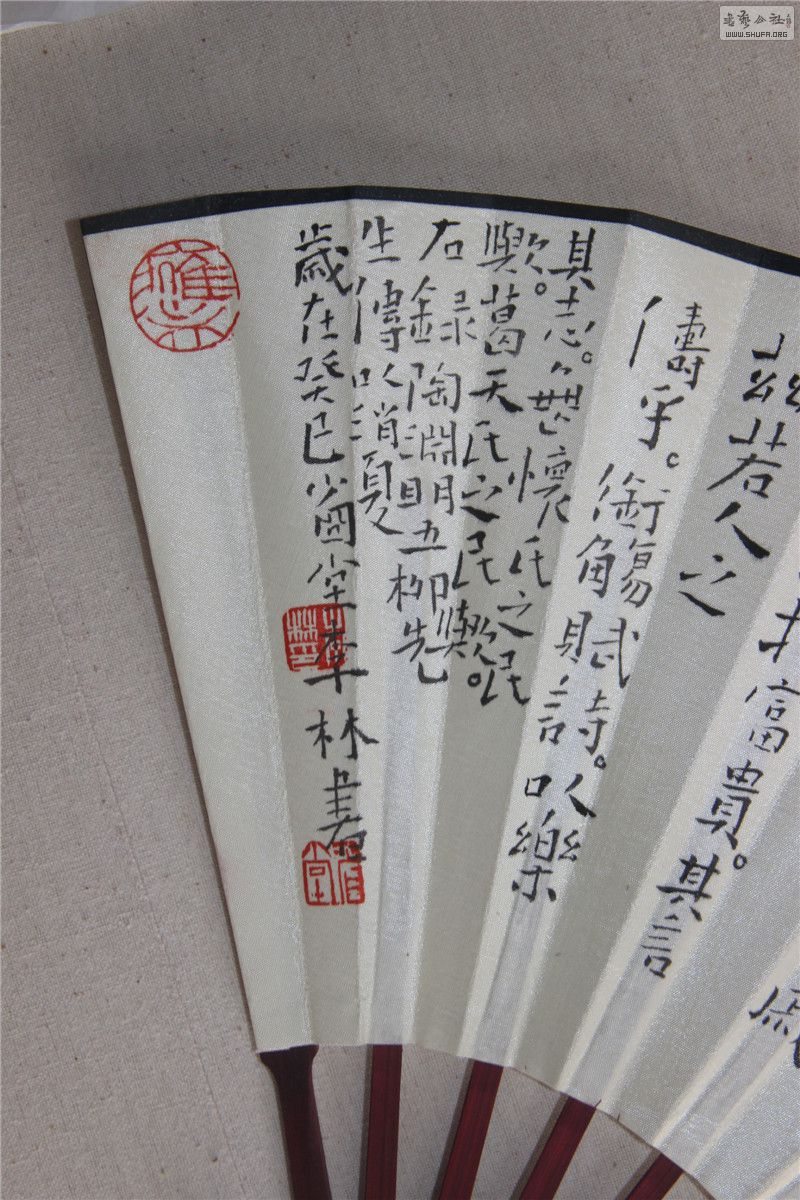 書藝公社
WWW.SHUFA.ORG
富貴。其言
茲若人之
儔乎。
銜觴賦詩。以樂
其志。無懷氏之民
歟。葛天氏之民歟。
右錄陶淵明五柳先
生傳以消夏
歲在癸巳少李林書